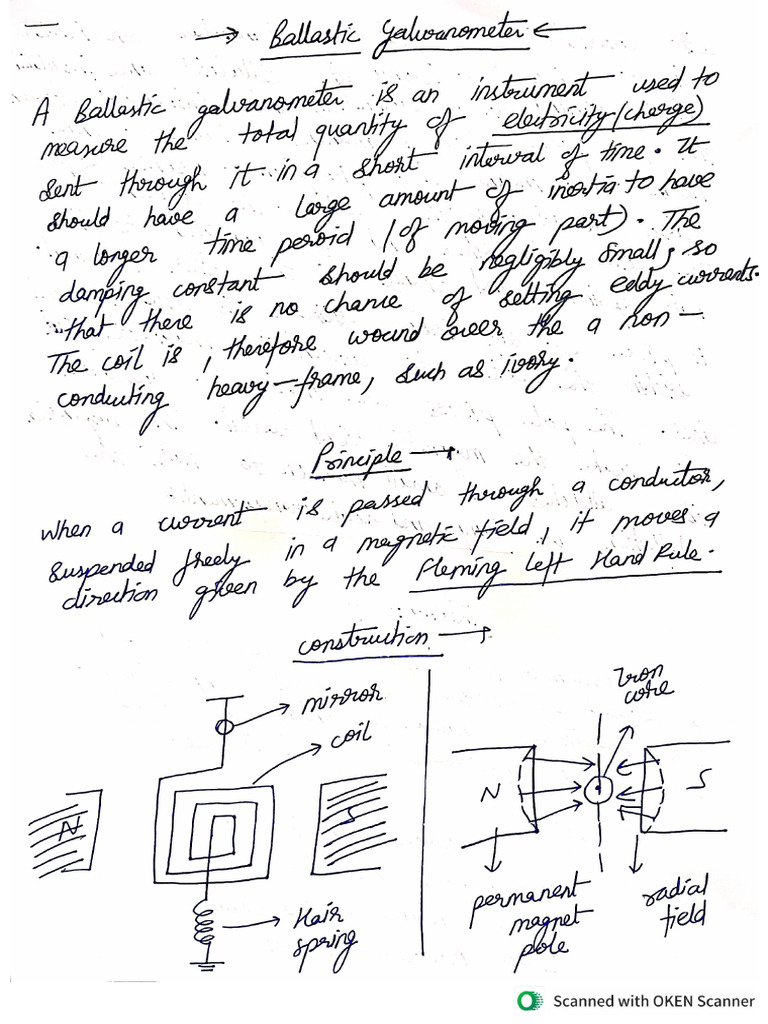 → Ballastic Galvanometer ←
A Ballastic galvanometer is an instrument used to
measure the total quantity of electricity (charge)
sent through it in a short interval of time. It
should have a large amount of inertia to have
a longer time peroid (of moving part). The
damping constant should be negligibly small, so
that there is no chance of setting eddy currents.
The coil is, therefore wound over the a non-
conducting heavy-frame, such as ivory.
Principle →
When a current is passed through a conductor,
suspended freely in a magnetic field, it moves a
direction given by the Fleming left Hand Rule.
construction →
mirror
coil
N
S
Hair
spring
Iron
core
N
S
permanent
magnet
pole
radial
field
Scanned with OKEN Scanner